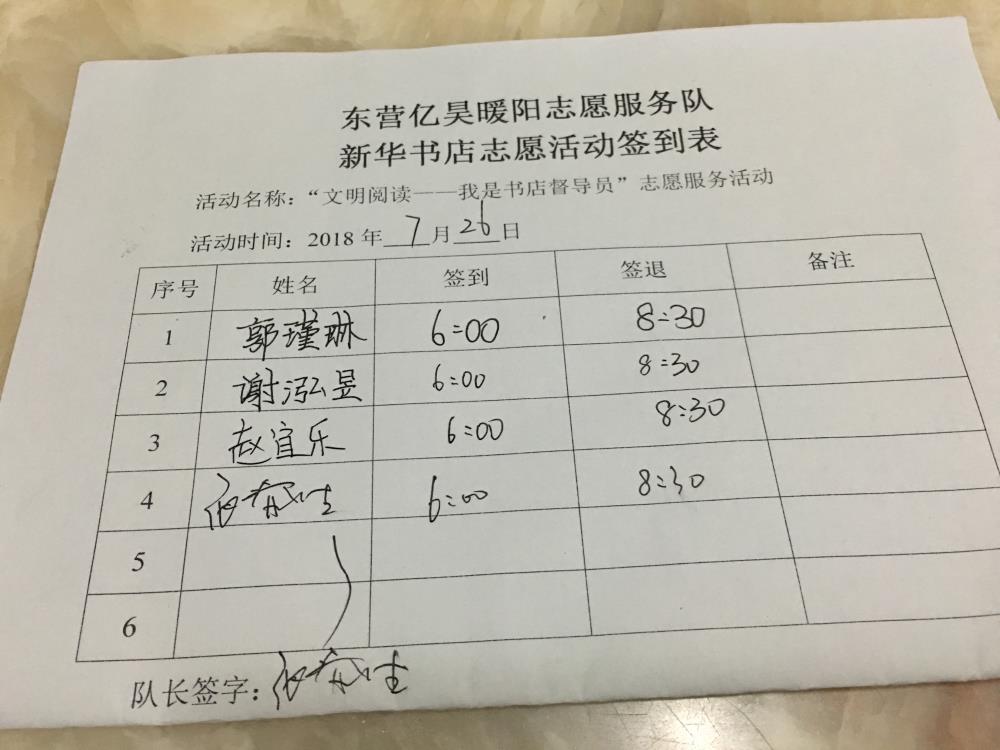 东营亿昊暖阳志愿服务队
新华书店志愿活动签到表
活动名称：“文明阅读——我是书店督导员”志愿服务活动
活动时间：2018年7月26日
序号 姓名 签到 签退 备注
1 郭瑾琳 6:00 8:30
2 谢泓昱 6:00 8:30
3 赵宜乐 6:00 8:30
4 6:00 8:30
5
6
队长签字：